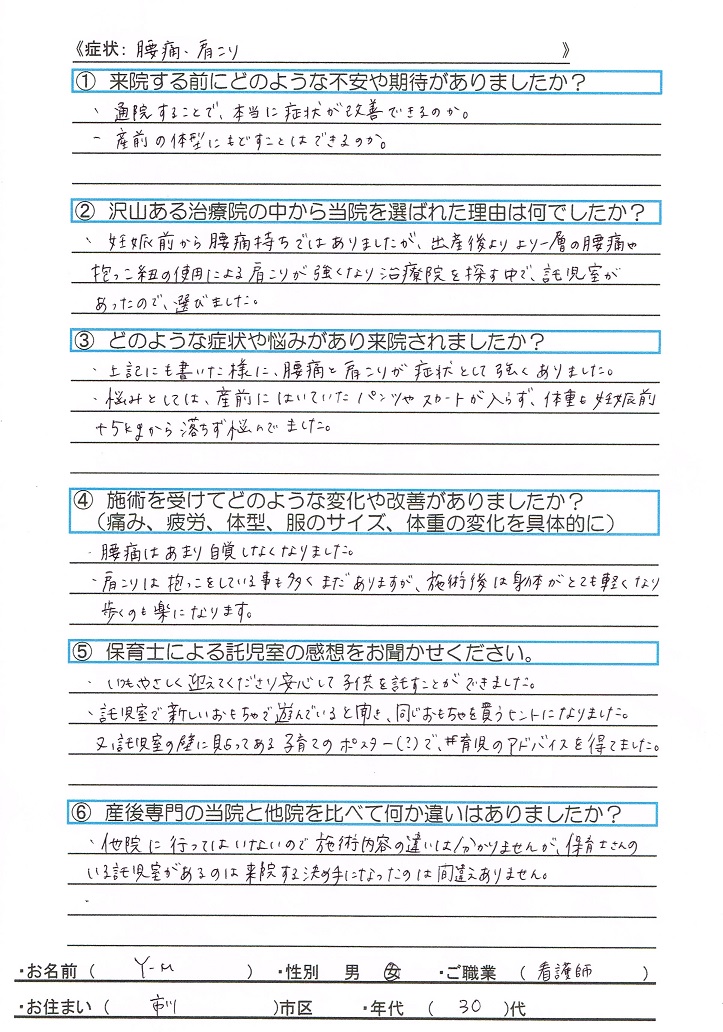 《症状: 腰痛、肩こり 》
① 来院する前にどのような不安や期待がありましたか？
・ 通院することで、本当に症状が改善できるのか。
- 産前の体型にもどすことはできるのか。
② 沢山ある治療院の中から当院を選ばれた理由は何でしたか？
・ 妊娠前から腰痛持ちではありましたが、出産後より より一層の腰痛や
抱っこ紐の使用による肩こりが強くなり治療院を探す中で、託児室が
あったので、選びました。
③ どのような症状や悩みがあり来院されましたか？
・上記にも書いた様に、腰痛と肩こりが症状として強くありました。
・悩みとしては、産前にはいていたパンツやスカートが入らず、体重も妊娠前
+5kgから落ちず悩んでました。
④ 施術を受けてどのような変化や改善がありましたか？
（痛み、疲労、体型、服のサイズ、体重の変化を具体的に）
・腰痛はあまり自覚しなくなりました。
・肩こりは抱っこをしている事も多くまだありますが、施術後は身体がとても軽くなり
歩くのも楽になります。
⑤ 保育士による託児室の感想をお聞かせください。
・いつもやさしく迎えてくださり安心して子供を託すことができました。
・託児室で新しいおもちゃで遊んでいると聞き、同じおもちゃを買うヒントになりました。
又、託児室の壁に貼ってある子育てのポスター(?)で、育児のアドバイスを得てました。
⑥ 産後専門の当院と他院を比べて何か違いはありましたか？
・他院に行ってはいないので施術内容の違いは分かりませんが、保育士さんの
いる託児室があるのは来院する決め手になったのは間違えありません。
・
・お名前（ Y-M ） ・性別 男 女 ・ご職業 （ 看護師 ）
・お住まい（ 市川 ）市区 ・年代 （ 30 ）代